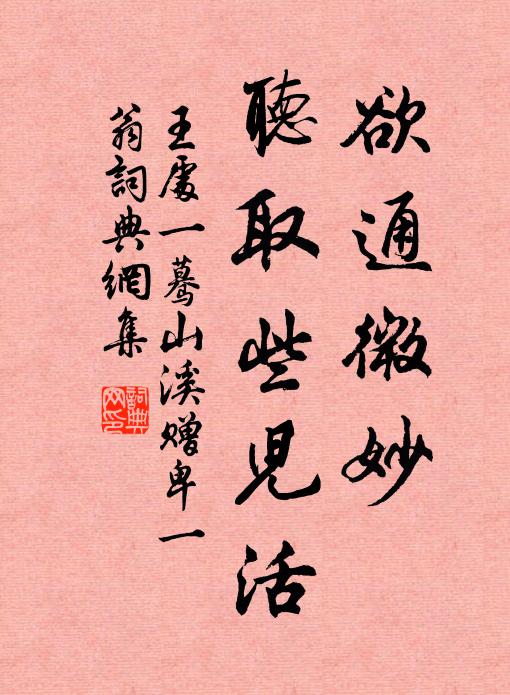 欲通微妙
聽取些兒活
王處一驀山溪贈卑一
翁詞典網集
詞典
网印